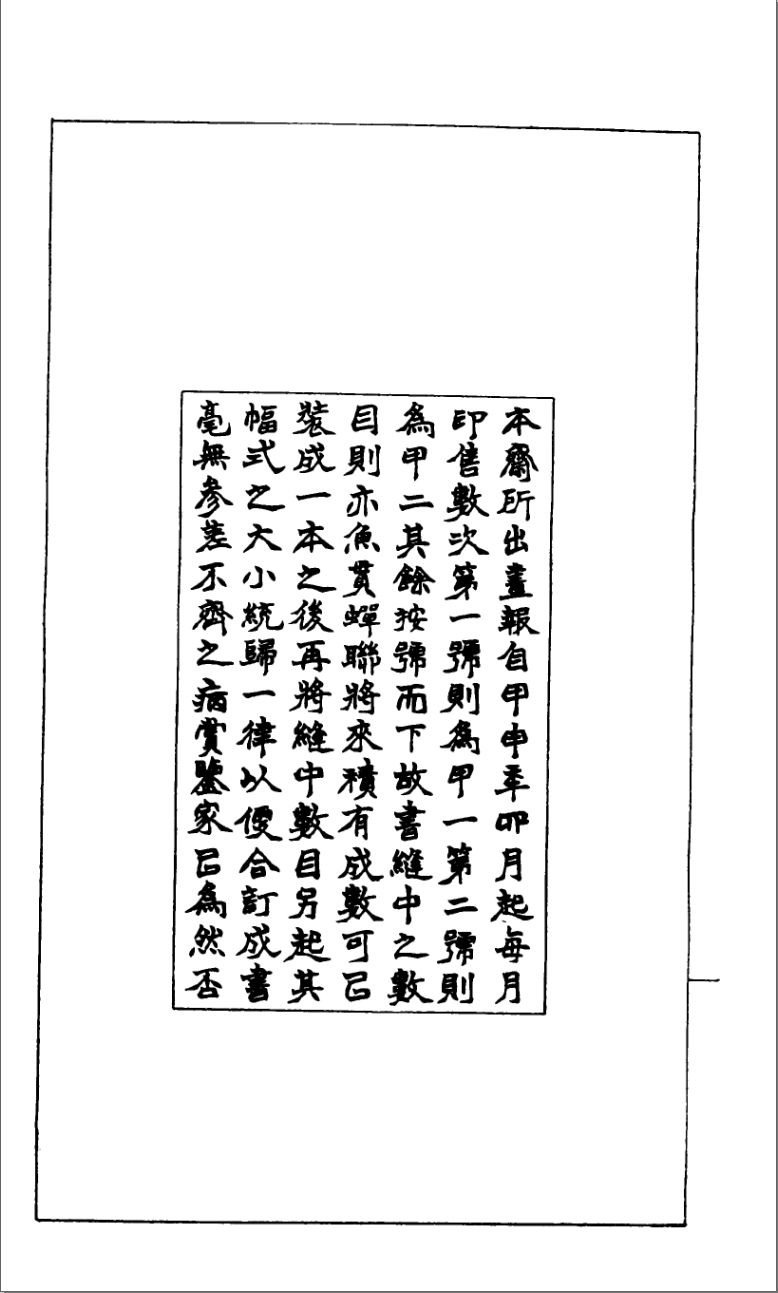 本齋所出畫報自甲申年卯月起每月
印售數次第一號則為甲一第二號則
為甲二其餘按號而下故書縫中之數
目則亦魚貫蟬聯將來積有成數可㠯
裝成一本之後再將縫中數目另起其
幅式之大小統歸一律以便合訂成書
毫無參差不齊之病賞鑒家㠯為然否